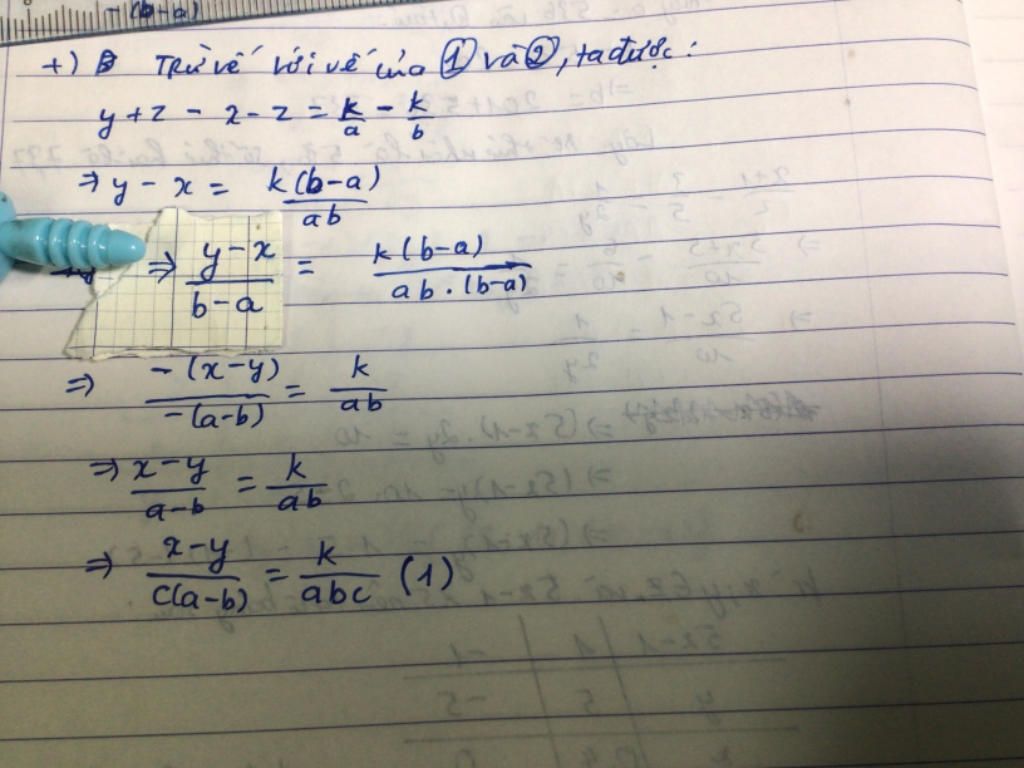 -(b-a)
+) Trừ vế với vế của ① và ②, ta được:
y+z - x - z = k/a - k/b
⇒ y - x = k(b-a)/ab
⇒ (y-x)/(b-a) = k(b-a)/(ab.(b-a))
⇒ -(x-y)/-(a-b) = k/ab
⇒ (x-y)/(a-b) = k/ab
⇒ (x-y)/(c(a-b)) = k/abc (1)